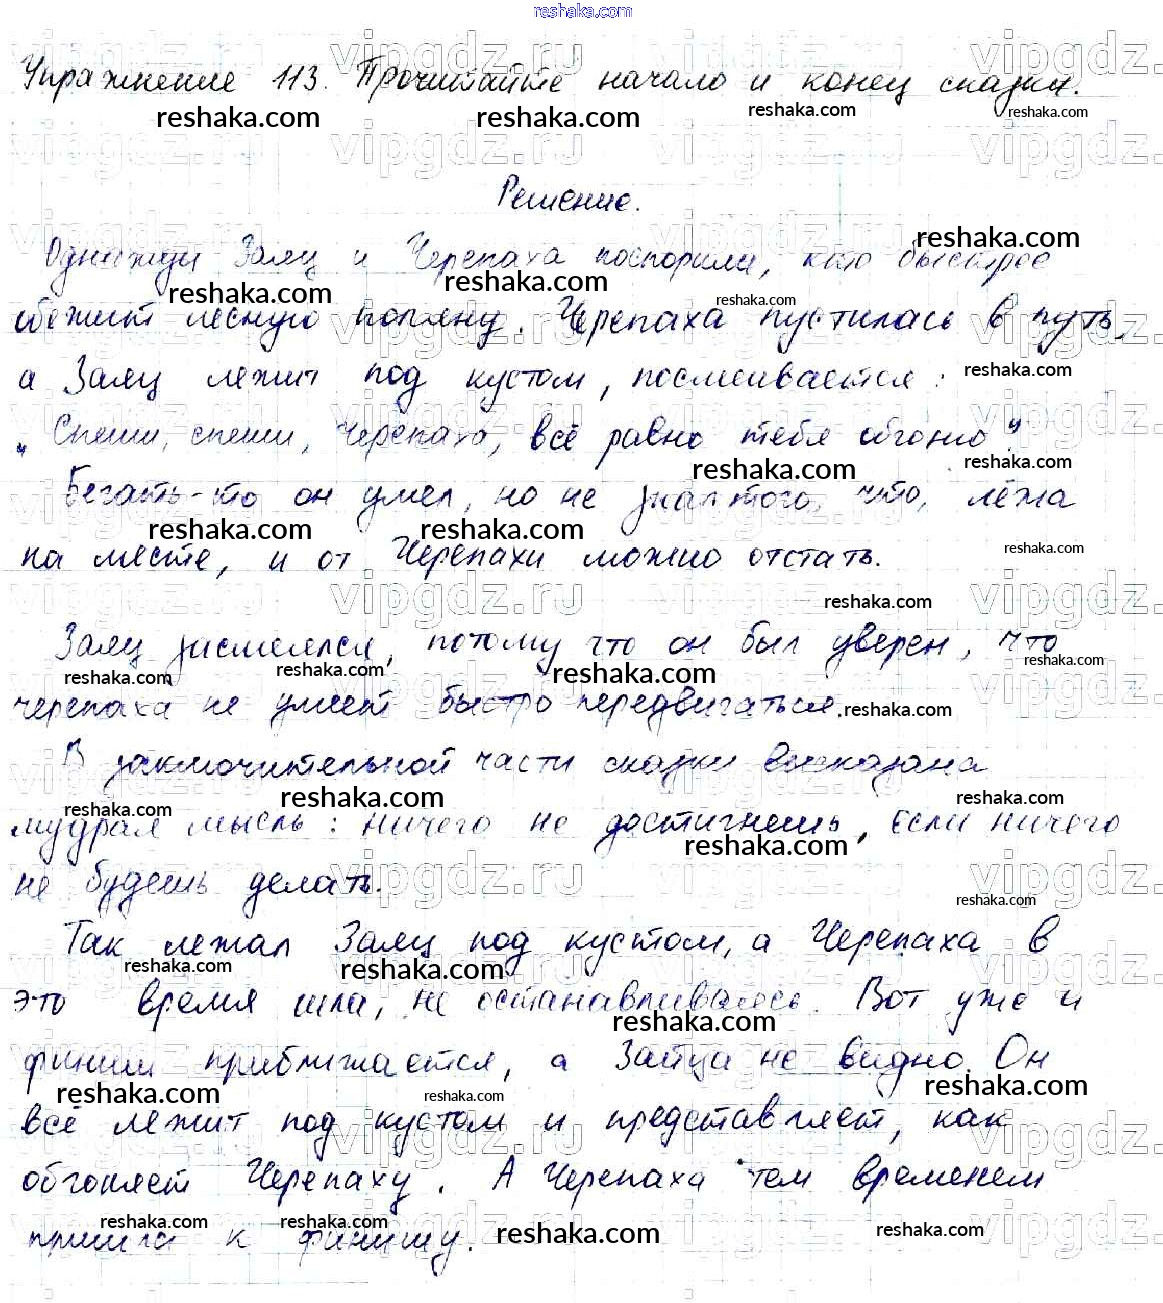 reshaka.com
Упражнение 113. Прочитайте начало и конец сказки.
Решение.
Однажды Заяц и Черепаха поспорили, кто быстрее
обежит лесную поляну. Черепаха пустилась в путь,
а Заяц лежит под кустом, посмеивается:
„Спеши, спеши, Черепаха, всё равно тебя обгоню“.
Бегать-то он умел, но не знал того, что, лёжа
на месте, и от Черепахи можно отстать.
Заяц засмеялся, потому что он был уверен, что
черепаха не умеет быстро передвигаться.
В заключительной части сказки высказана
мудрая мысль: ничего не достигнешь, если ничего
не будешь делать.
Так лежал Заяц под кустом, а Черепаха в
это время шла, не останавливаясь. Вот уже и
финиш приближается, а Зайца не видно. Он
всё лежит под кустом и представляет, как
обгоняет Черепаху. А Черепаха тем временем
пришла к финишу.